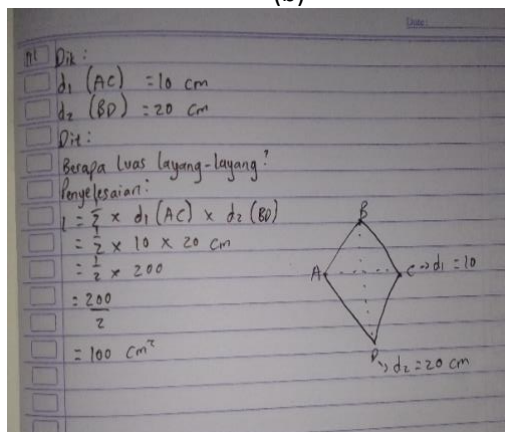 (b)
Date:
Dik:
d₁ (AC) = 10 cm
d₂ (BD) = 20 cm
Dit:
Berapa luas layang-layang?
Penyelesaian:
L = 1/2 × d₁ (AC) × d₂ (BD)
= 1/2 × 10 × 20 cm
= 1/2 × 200
= 200/2
= 100 cm²
B
A
C → d₁ = 10
D
→ d₂ = 20 cm